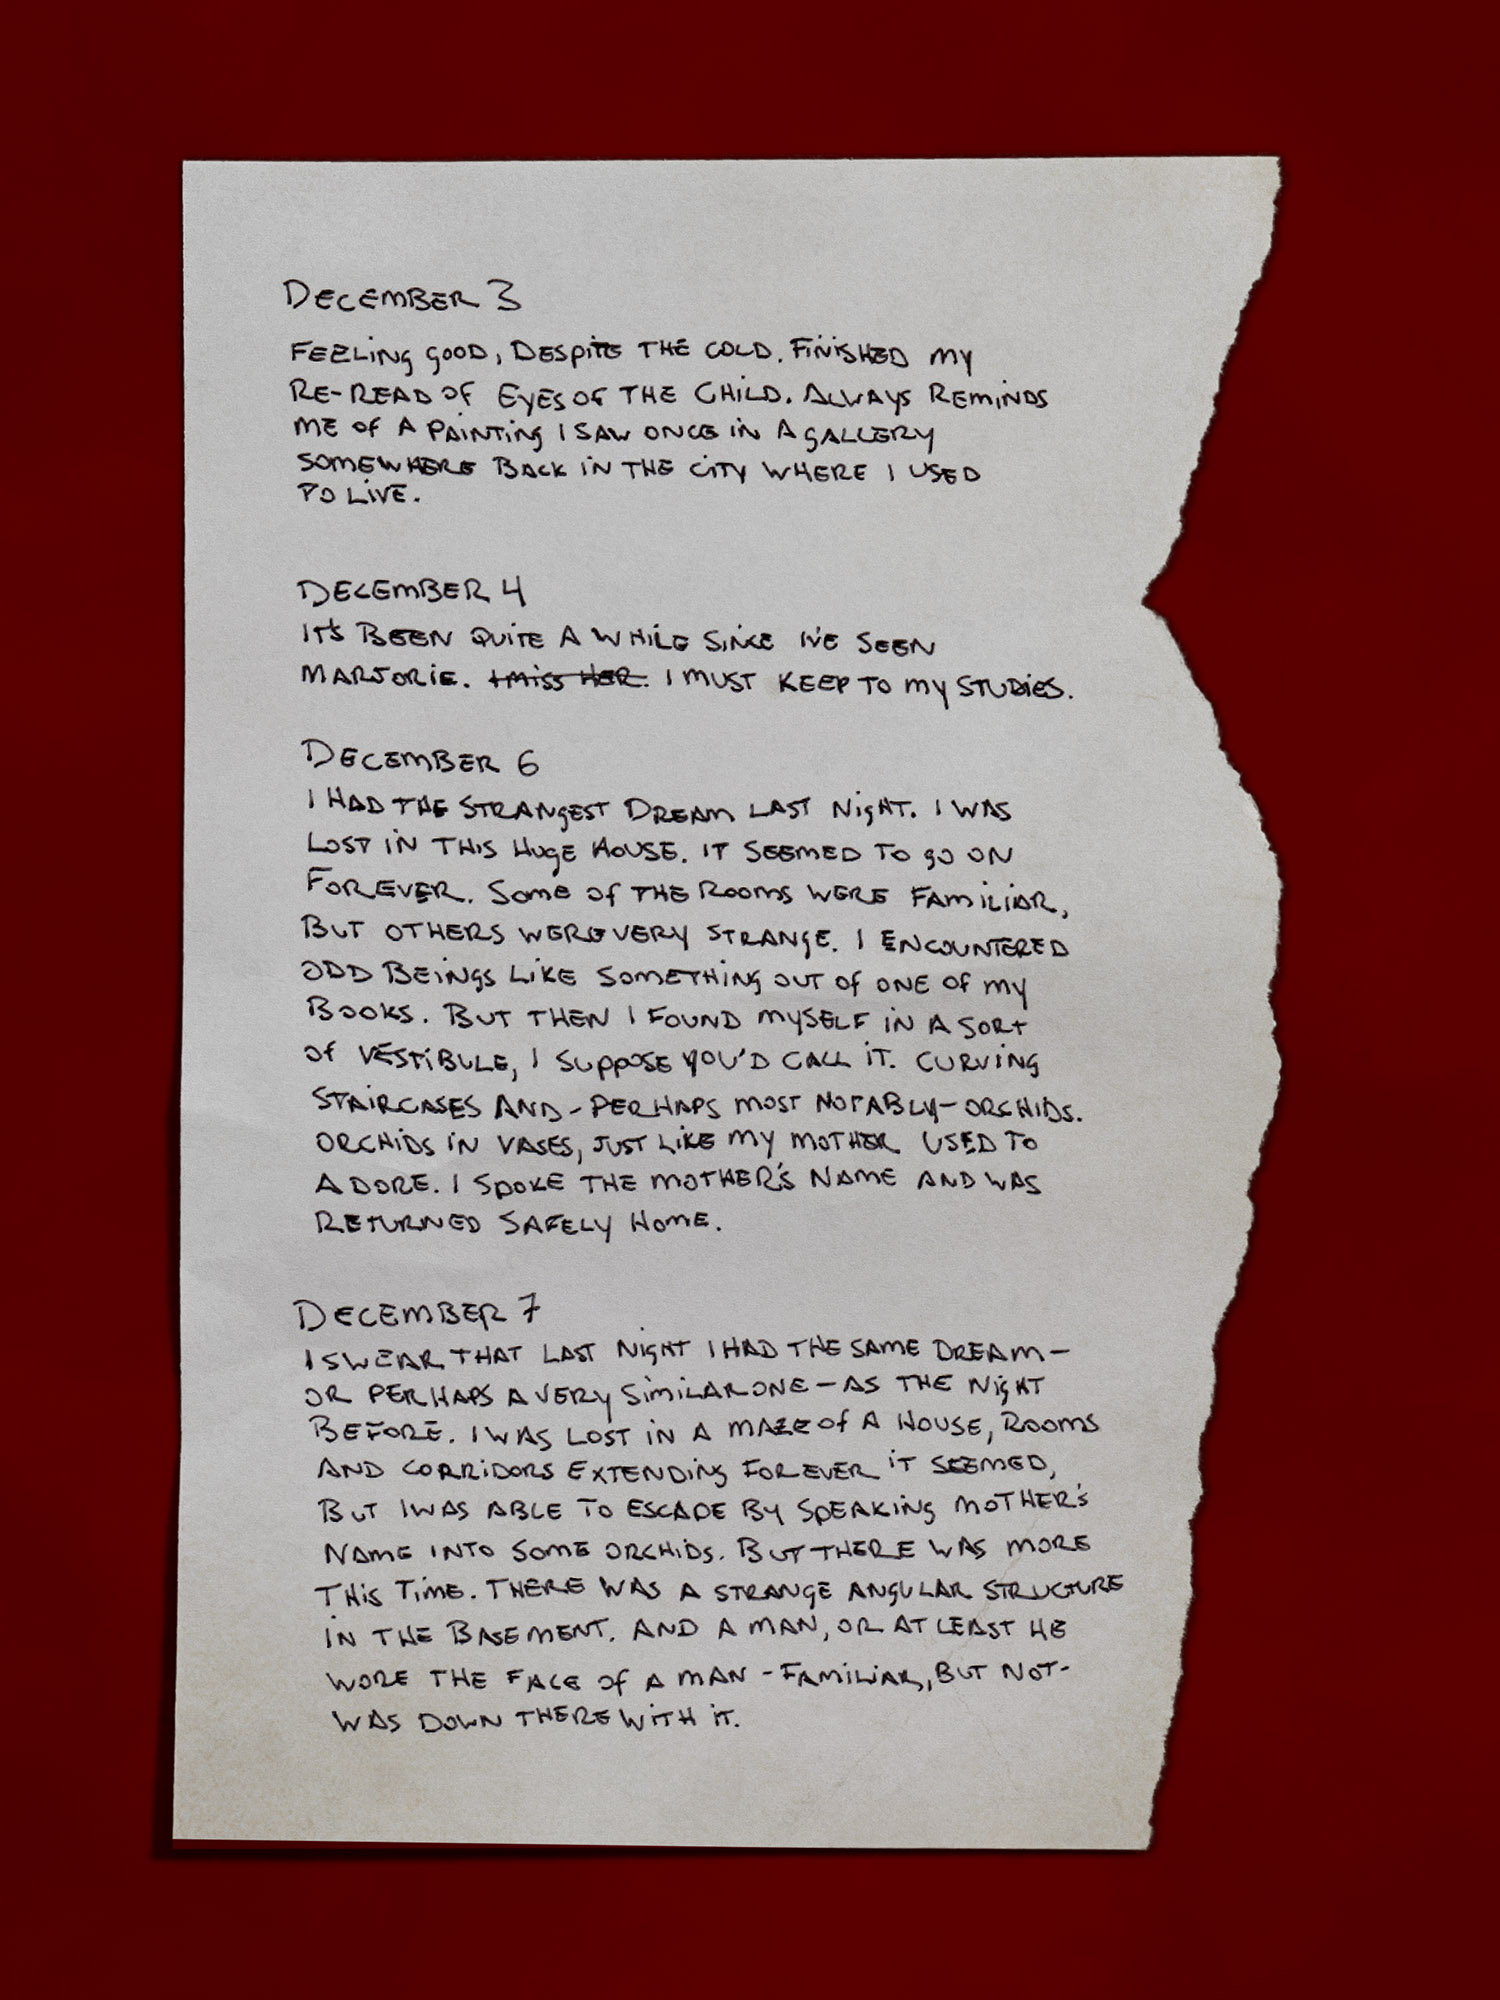 DECEMBER 3
FEELING GOOD, DESPITE THE COLD. FINISHED MY
RE-READ OF EYES OF THE CHILD. ALWAYS REMINDS
ME OF A PAINTING I SAW ONCE IN A GALLERY
SOMEWHERE BACK IN THE CITY WHERE I USED
TO LIVE.
DECEMBER 4
IT'S BEEN QUITE A WHILE SINCE I'VE SEEN
MARJORIE. I MISS HER. I MUST KEEP TO MY STUDIES.
DECEMBER 6
I HAD THE STRANGEST DREAM LAST NIGHT. I WAS
LOST IN THIS HUGE HOUSE. IT SEEMED TO GO ON
FOREVER. SOME OF THE ROOMS WERE FAMILIAR,
BUT OTHERS WERE VERY STRANGE. I ENCOUNTERED
ODD BEINGS LIKE SOMETHING OUT OF ONE OF MY
BOOKS. BUT THEN I FOUND MYSELF IN A SORT
OF VESTIBULE, I SUPPOSE YOU'D CALL IT. CURVING
STAIRCASES AND - PERHAPS MOST NOTABLY - ORCHIDS.
ORCHIDS IN VASES, JUST LIKE MY MOTHER USED TO
ADORE. I SPOKE THE MOTHER'S NAME AND WAS
RETURNED SAFELY HOME.
DECEMBER 7
I SWEAR THAT LAST NIGHT I HAD THE SAME DREAM -
OR PERHAPS A VERY SIMILAR ONE - AS THE NIGHT
BEFORE. I WAS LOST IN A MAZE OF A HOUSE, ROOMS
AND CORRIDORS EXTENDING FOREVER IT SEEMED,
BUT I WAS ABLE TO ESCAPE BY SPEAKING MOTHER'S
NAME INTO SOME ORCHIDS. BUT THERE WAS MORE
THIS TIME. THERE WAS A STRANGE ANGULAR STRUCTURE
IN THE BASEMENT. AND A MAN, OR AT LEAST HE
WORE THE FACE OF A MAN - FAMILIAR, BUT NOT -
WAS DOWN THERE WITH IT.